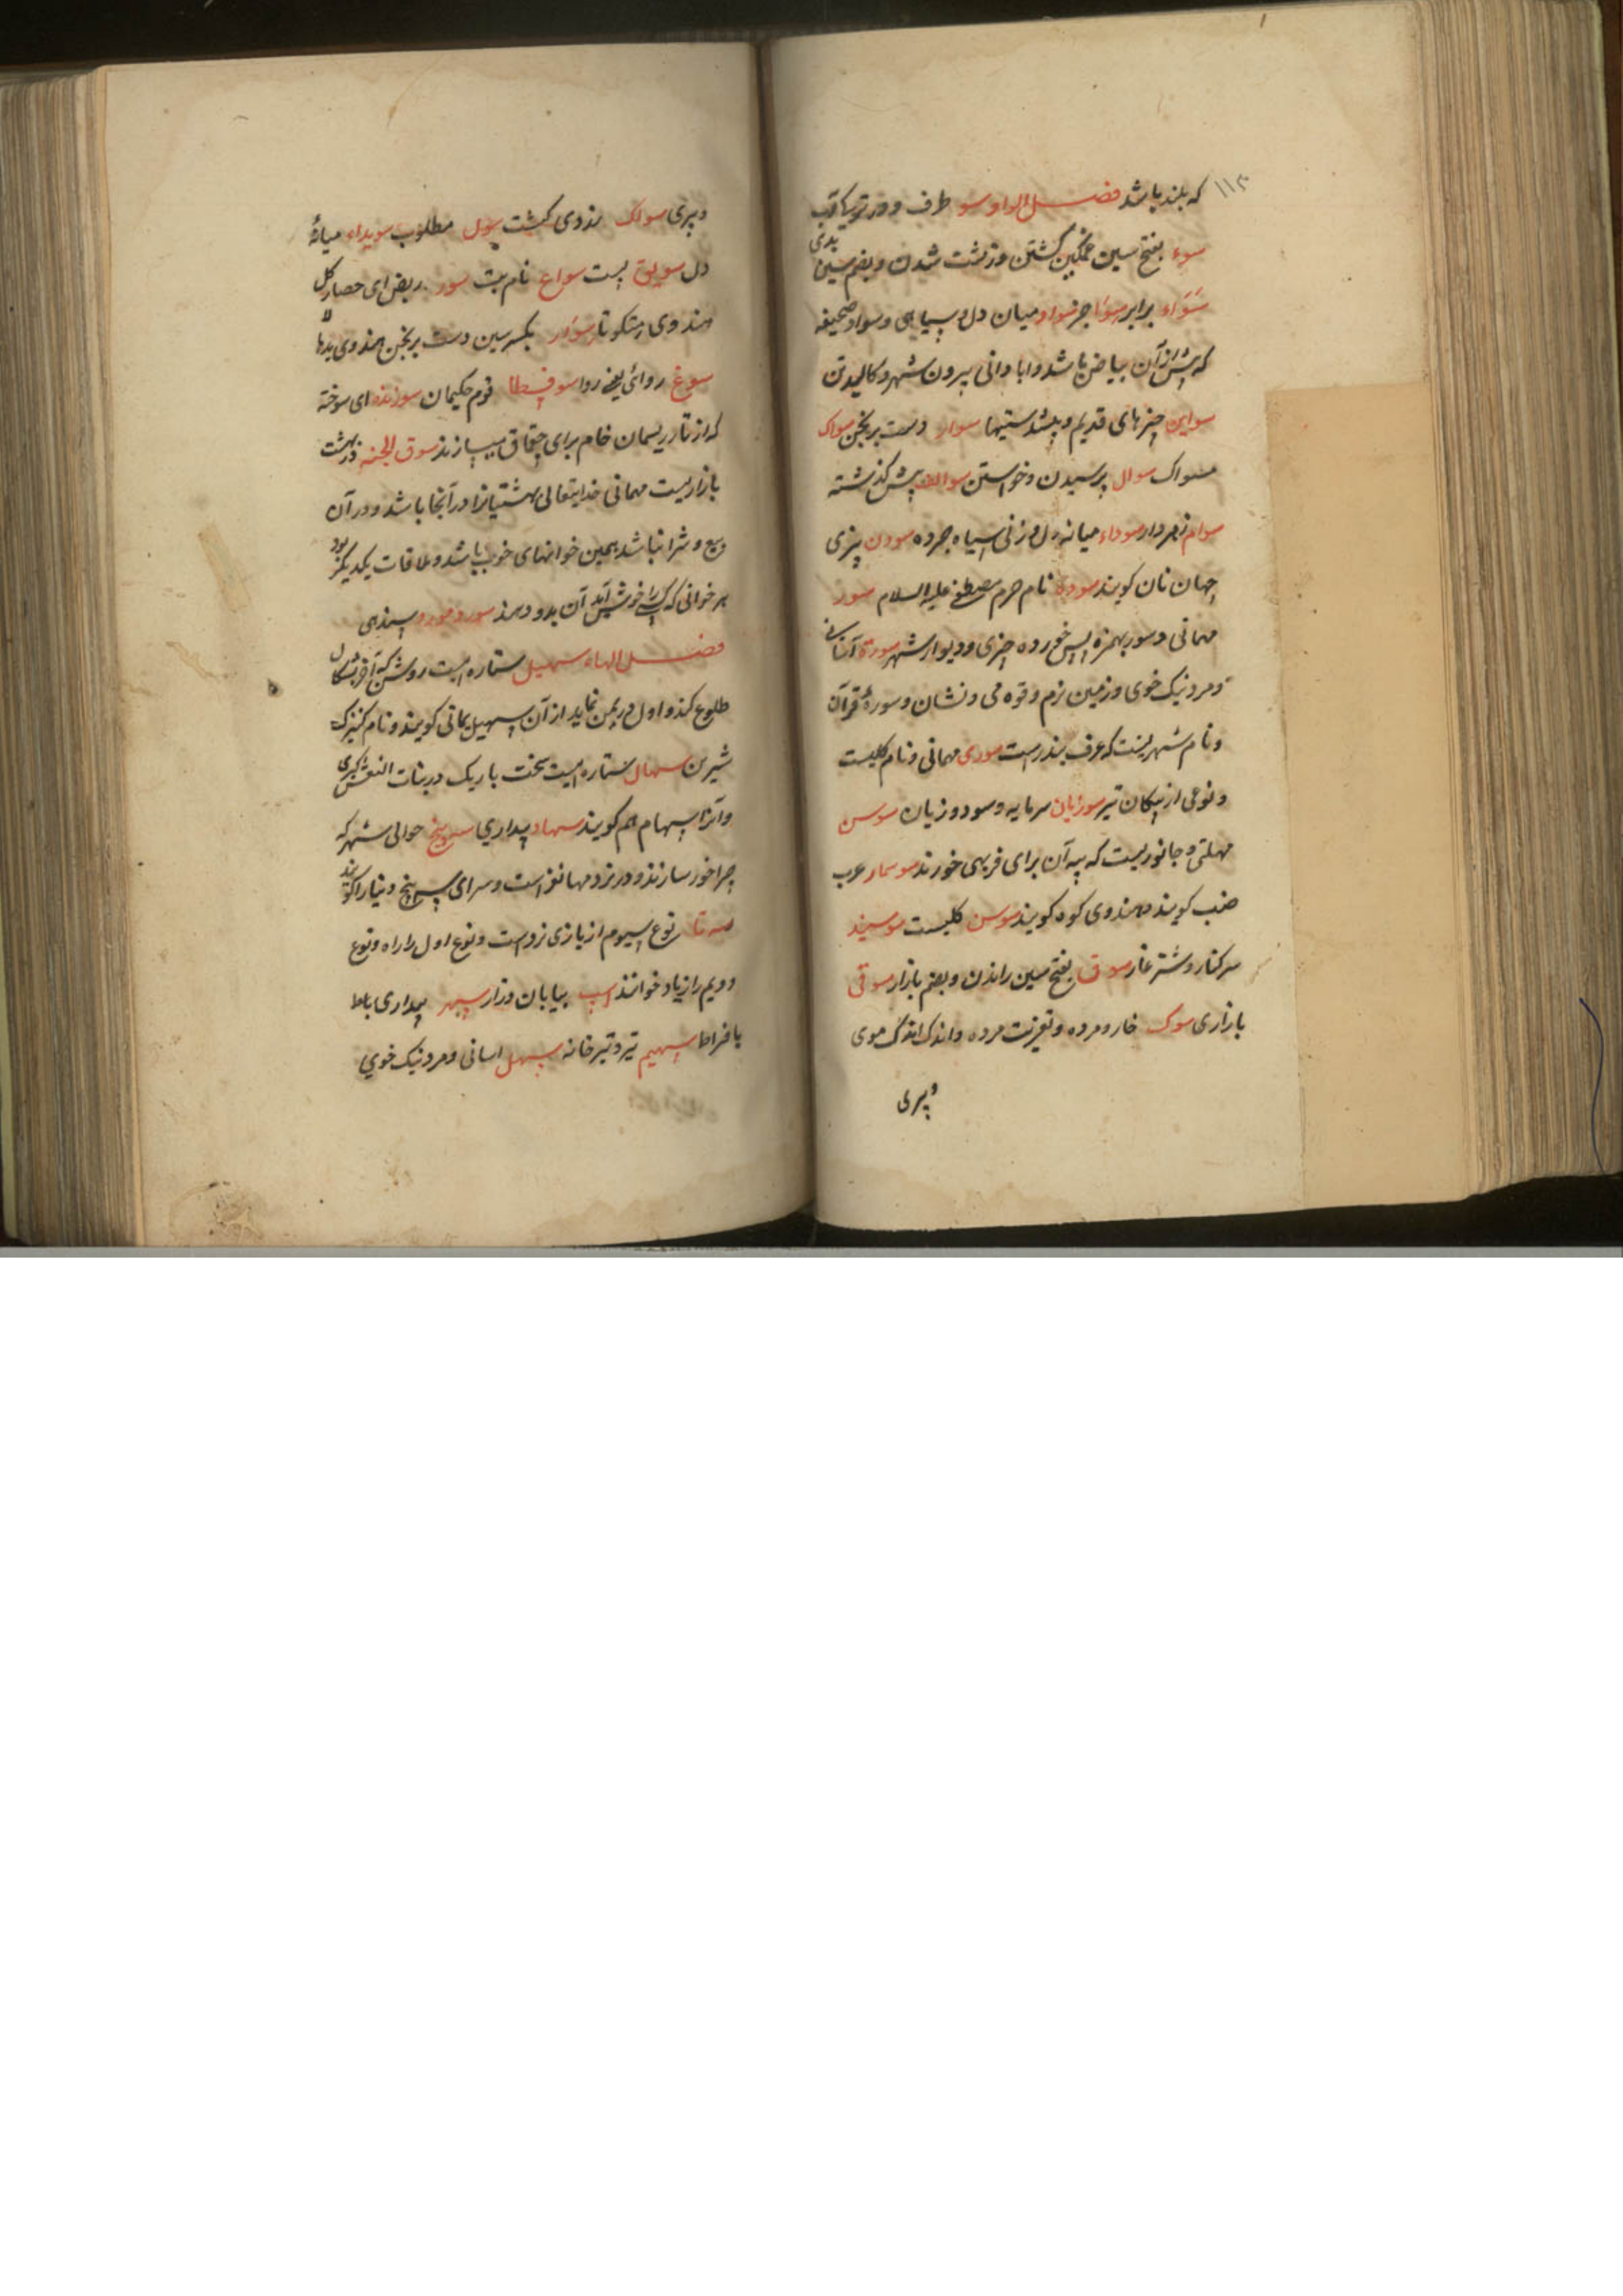 ۱۱۲
که بلند باشد فصل الواو سو طرف و در ترکی آب
سوء بفتح سین غمگین گشتن و زشت شدن و بضم سین بدی
سَوَاء برابر سوا جز سواد میان دل و سیاهی و سواد صحیفه
که پیش از آن بیاض باشد و ابادانی بیرون شهر و کالبدتن
سواین چیزهای قدیم و سوار دست برنجن سواک
مسواک سوال پرسیدن و خواستن سوالف پیش گذشته
سوام زهردار سوداء میانه دل و زنی سیاه جرده سودن چیزی
جهان نان کویند سوده نام حرم مصطفی علیه السلام سور
مهمانی و سور بهمزه پس خورده چیزی و دیوار شهر سورة آسانی
و مرد نیک خوی و زمین نرم و قوه می و نشان و سورهٔ قرآن
و نام شهریست که عرف بندر است سوری مهمانی و نام کلیست
و نوعی از پیکان تیر سوزیان سرمایه و سود و زیان سوسن
مهلتی و جانوریست که پیه آن برای فربهی خورند سوسمار عرب
ضب کویند و هندوی کوه کویند سوسن کلیست
سرکنار و شتر غار سوق بفتح سین راندن و بضم بازار سوقی
بازاری سوک خار و مرده و تعزیت مرده و اندک اندک موی
و پری
و پری سواک زدوی کشت سول مطلوب سویداء میانهٔ
دل سویق پست سواع نام بت سور ربض ای حصار کل
هندوی سوار بکسر سین دست برنجن هندوی
سوغ روائی یعنی روا سوفسطا قوم حکیمان سوزنده ای سوخته
که از تار ریسمان خام برای چقماق میسازند سوق الجنه در بهشت
بازاریست مهمانی خدایتعالی بهشتیانرا در آنجا باشد و در آن
بیع و شرا نباشد همین خوانهای خوب باشد و ملاقات یکدیگر بود
هر خوانی که کسی را خوش آید آن بدو دهند
فصل الهاء سهیل ستاره ایست روشن که آخر
طلوع کند و اول در یمن نماید از آن سهیل یمانی کویند و نام کنیزک
شیرین سهال ستاره ایست سخت باریک در بنات النعش کبری
و آنرا سهام هم کویند سهاد بیداری سپنج حوالی شهر که
چراخور سازند و در نزد است و سرای سپنج دنیا را کویند
سه تا نوع سیوم از بازی نرد است و نوع اول را راه و نوع
دویم را زیاد خوانند سهب بیابان و زار سهر بیداری
بافراط سهیم تیر و تیر خانه سهل اسانی و مرد نیک خوی